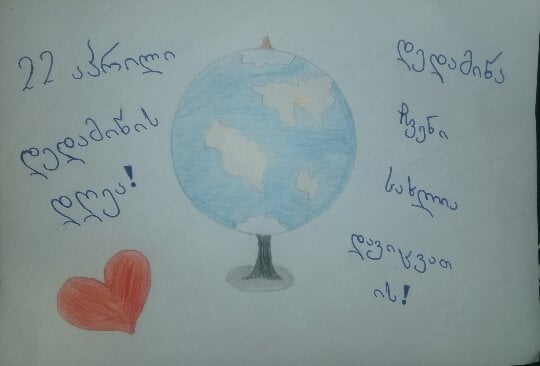 22 აპრილი
დედამიწის
დღეა!
დედამიწა
ჩვენი
სახლია
დავიცვათ
ის!